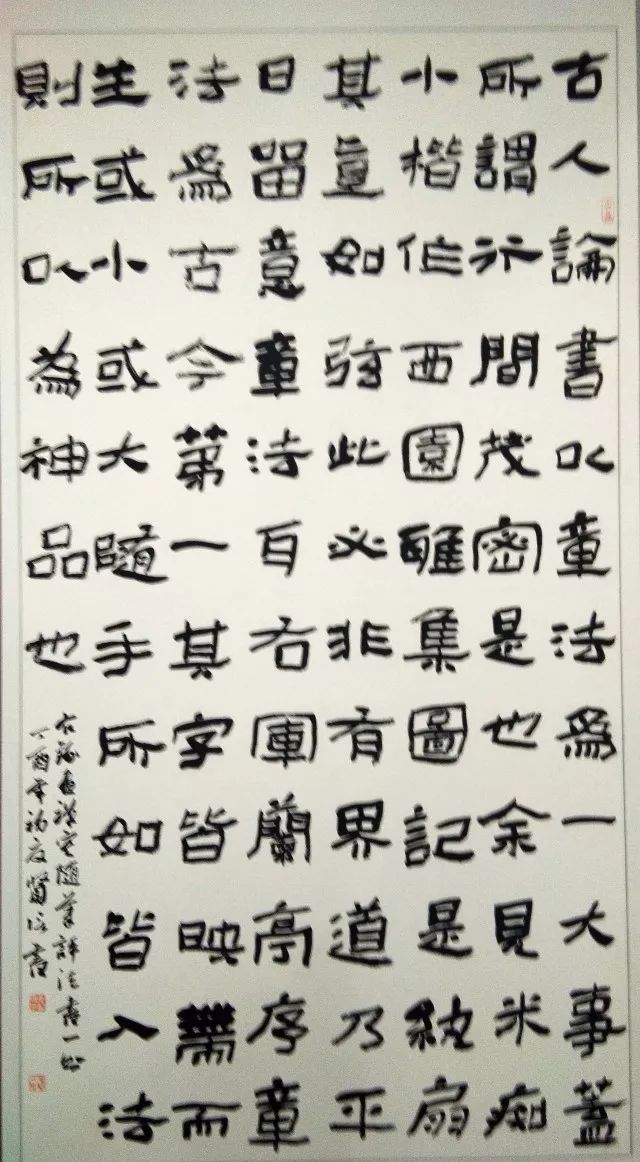 古人論書以章法為一大事蓋
所謂行間茂密是也余見米痴
小楷作西園雅集圖記是紈扇
其直如弦此必非有界道乃平
日留意章法耳右軍蘭亭序章
法為古今第一其字皆映帶而
生或小或大隨手所如皆入法
則所以為神品也
右錄畫禪室隨筆評法書一則
丁酉年初夏書